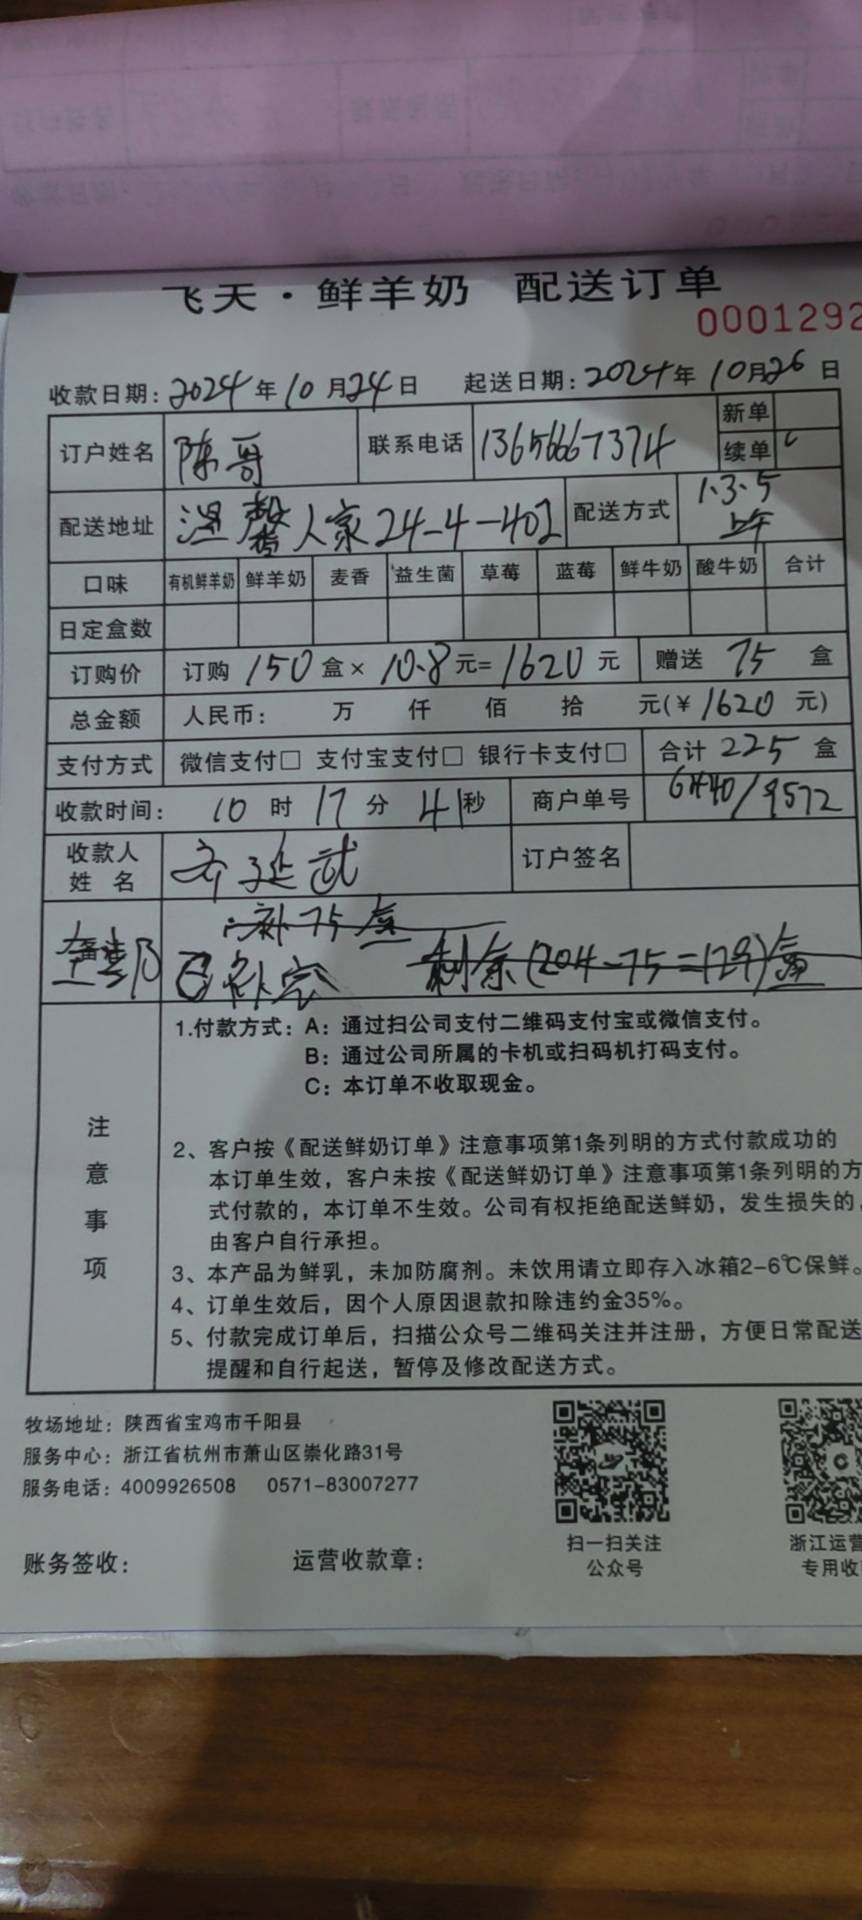 飞天·鲜羊奶 配送订单
0001292
收款日期：2024年10月24日 起送日期：2024年10月26日
订户姓名 陈哥 联系电话 13656667374 新单
续单
配送地址 温馨人家24-4-402 配送方式 1.3.5 上午
口味 有机鲜羊奶 鲜羊奶 麦香 益生菌 草莓 蓝莓 鲜牛奶 酸牛奶 合计
日定盒数
订购价 订购 150 盒× 10.8 元= 1620 元 赠送 75 盒
总金额 人民币： 万 仟 佰 拾 元(￥1620 元)
支付方式 微信支付□ 支付宝支付□ 银行卡支付□ 合计 225 盒
收款时间： 10 时 17 分 41 秒 商户单号 6440/9572
收款人姓名 齐延武 订户签名
补75盒
已补完 剩余(204-75=129)盒
注意事项
1.付款方式：A：通过扫公司支付二维码支付宝或微信支付。
B：通过公司所属的卡机或扫码机打码支付。
C：本订单不收取现金。
2、客户按《配送鲜奶订单》注意事项第1条列明的方式付款成功的
本订单生效，客户未按《配送鲜奶订单》注意事项第1条列明的方
式付款的，本订单不生效。公司有权拒绝配送鲜奶，发生损失的，
由客户自行承担。
3、本产品为鲜乳，未加防腐剂。未饮用请立即存入冰箱2-6℃保鲜。
4、订单生效后，因个人原因退款扣除违约金35%。
5、付款完成订单后，扫描公众号二维码关注并注册，方便日常配送
提醒和自行起送，暂停及修改配送方式。
牧场地址：陕西省宝鸡市千阳县
服务中心：浙江省杭州市萧山区崇化路31号
服务电话：4009926508 0571-83007277
扫一扫关注
公众号
浙江运营
专用收
账务签收： 运营收款章：